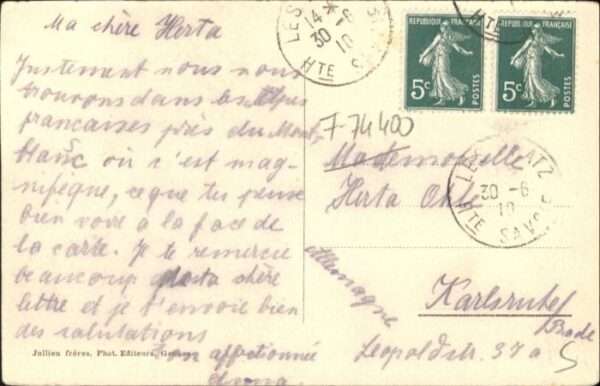 Ma chère Herta
Justement nous nous
trouvons dans les Alpes
francaises près du Mont
blanc où c'est mag-
nifique, ce que tu peux
bien voir à la face de
la carte. Je te remercie
beaucoup chère
lettre et je t'envoie bien
des salutations
Ton affectionnée
Jullien frères, Phot. Editeurs, Genève
REPUBLIQUE FRANÇAISE
5c
POSTES
REPUBLIQUE FRANÇAISE
5c
POSTES
14* 
30 -6
10
HTE SAVOIE
F 74 400
Mademoiselle
Herta Ohle
30 -6
10
HTE SAVOIE
Allemagne
Karlsruhe
Bade
Leopoldstr. 37a